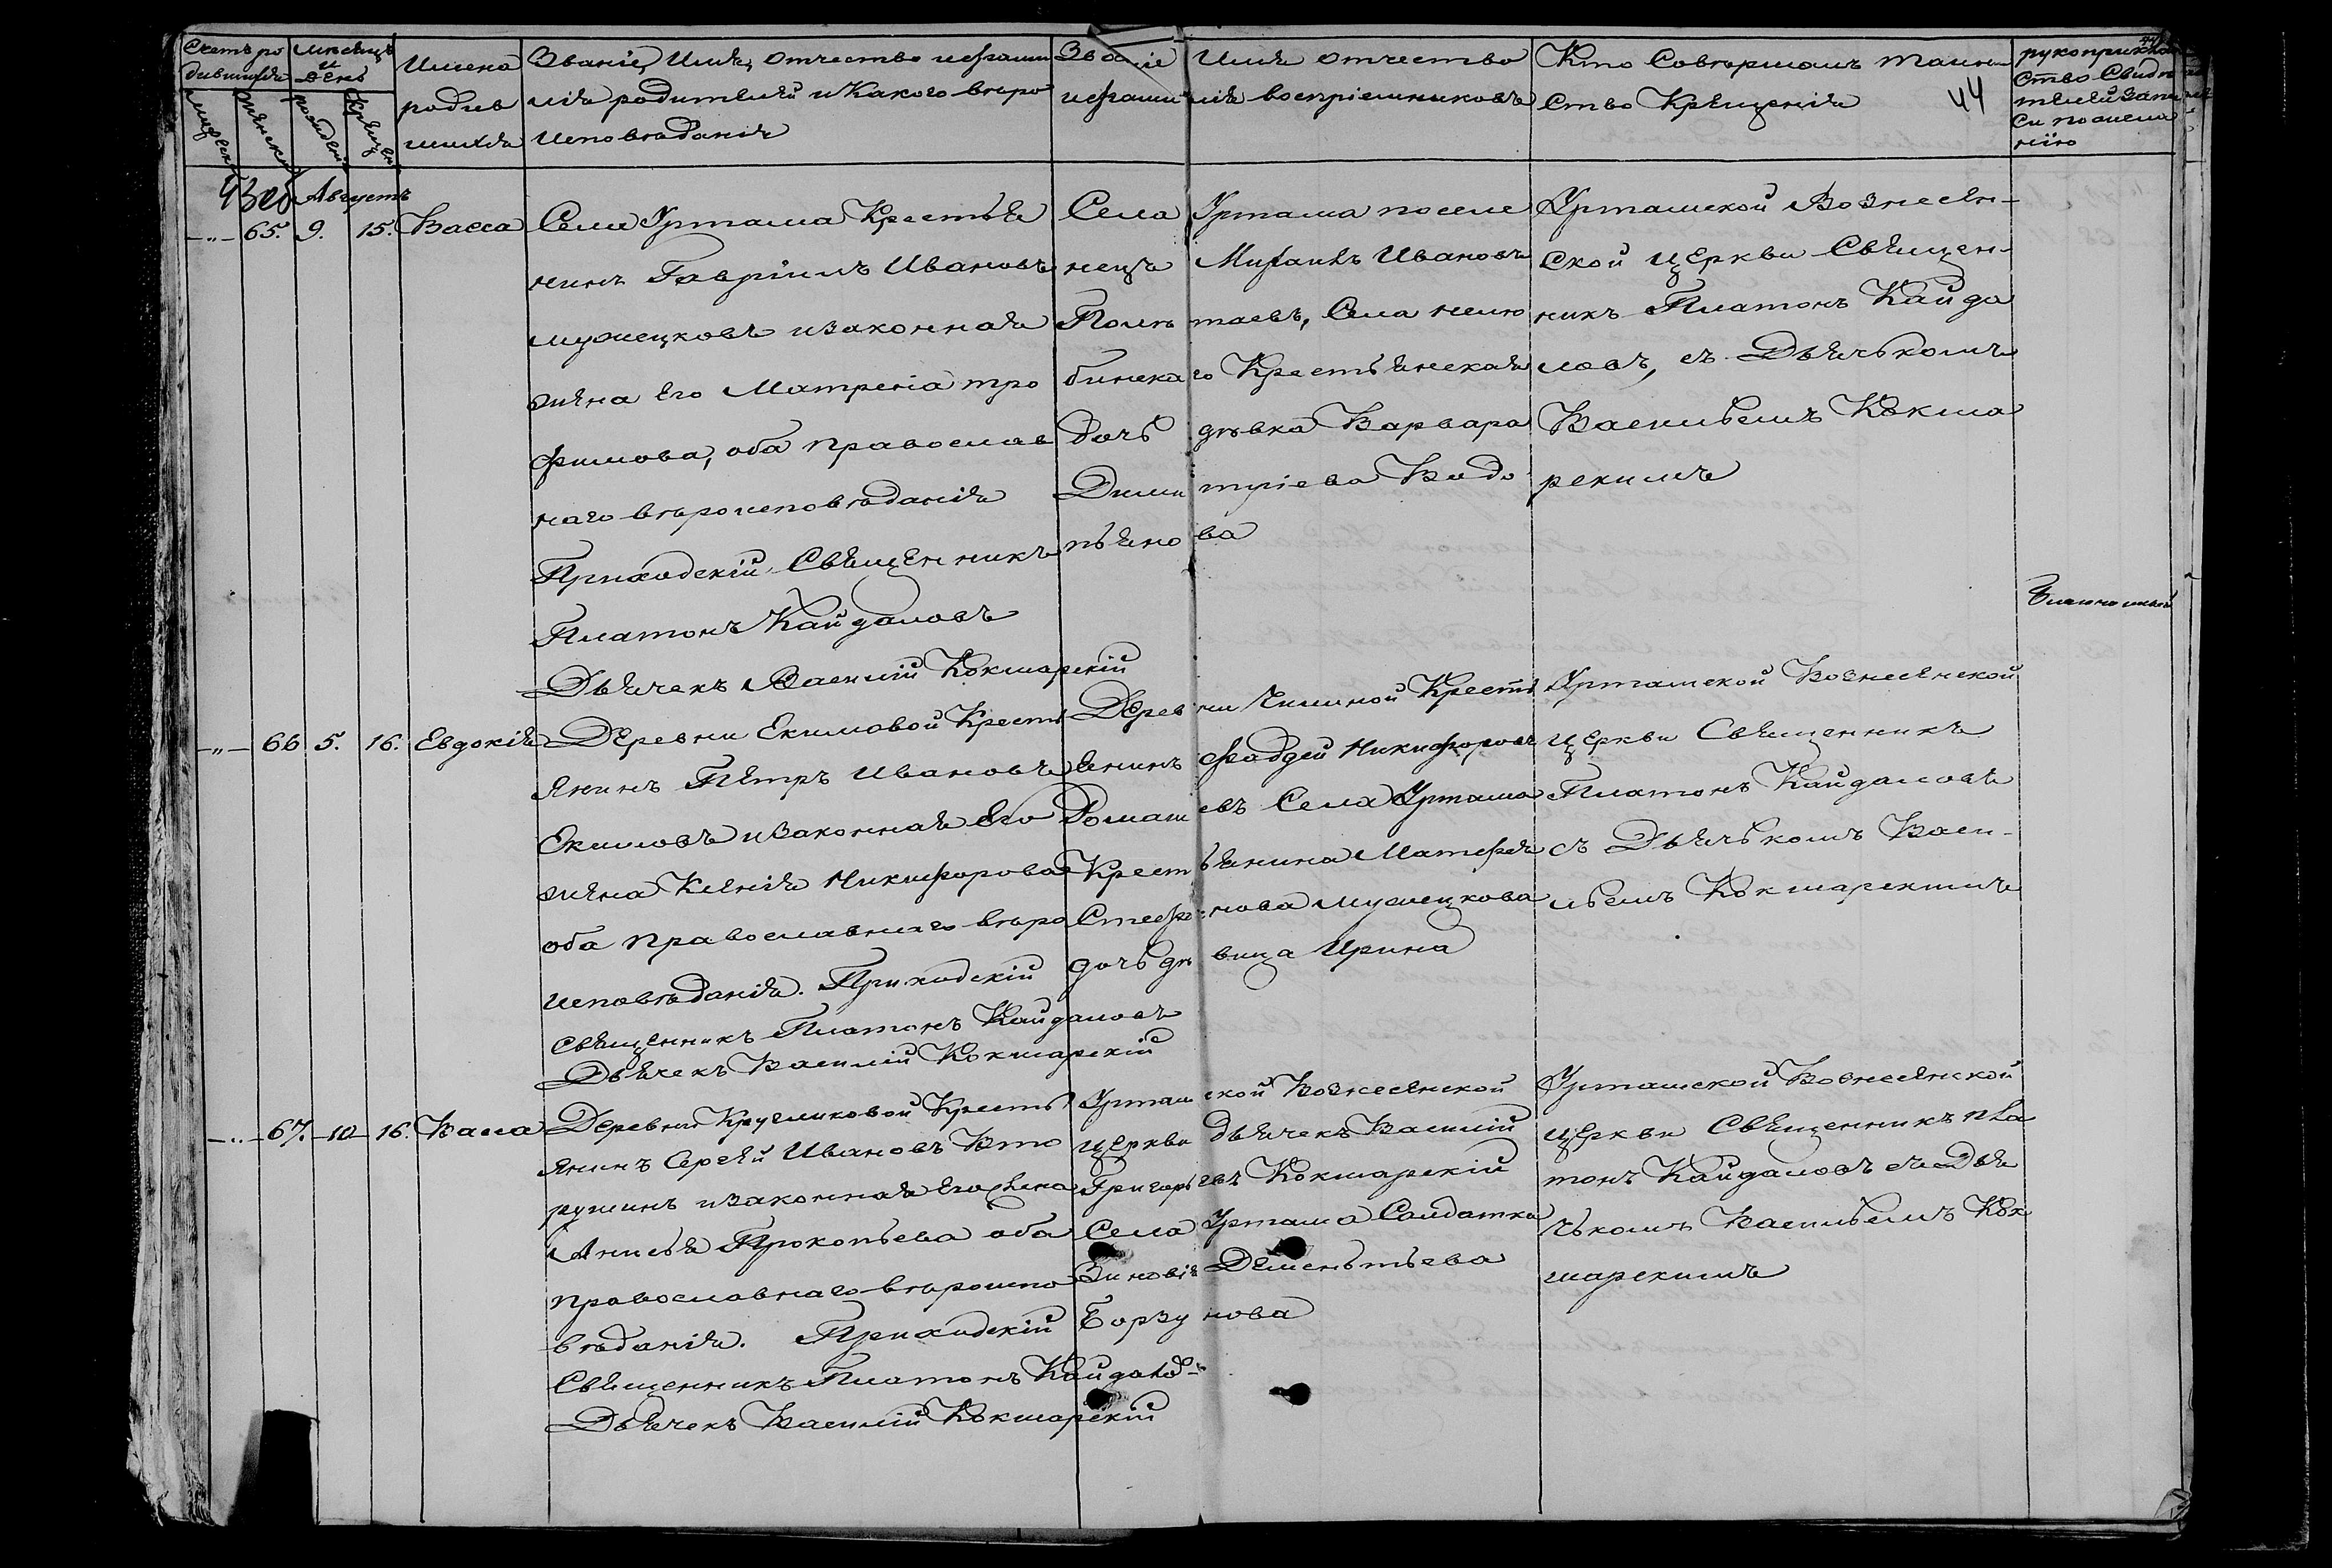 44
Счетъ ро
дившихся
Мѣсяцъ
и
день
Имена
родив
шихся
Званіе, Имя, Отчество и фами
лія родителей и Какого вѣро
исповѣданія
Званіе Имя отчество
и фамилія воспріемниковъ
Кто Совершалъ таин
ство Крещенія
рукоприклад
ство Свидѣ
телей запи
си по жела
нію
мужеск
женск
рожден
крещен
Августъ
—„— 65. 9. 15. Васса
Села Уртама Крестья
нинъ Гавріилъ Ивановъ
мужецковъ и законная
жена Его Матрена тро
фимова, оба православ
наго вѣроисповѣданія
Приходскій Священникъ
Платонъ Кайдаловъ
Дьячекъ Василій Кокшарскій
Села Уртама поселе
нецъ Михаилъ Ивановъ
Полѣтаевъ, Села нелю
бинскаго Крестьянская
дочь дѣвка Варвара
Димитріева Водо
пьянова
Уртамской Вознесен-
ской церкви Священ-
никъ Платонъ Кайда
ловъ, съ Дьячькомъ
Васильемъ Кокша
рскимъ
—„— 66 5. 16. Евдокія
Деревни Екимовой Кресть
янинъ Петръ Ивановъ
Екимовъ и законная Его
жена Ксенія Никифорова
оба православнаго вѣро
исповѣданія. Приходскій
священникъ Платонъ Кайдаловъ
Дьячекъ Василій Кокшарскій
Деревни Кресть
янинъ Фаддей Никифоровъ
Села Уртама
Крестьянина Матфея
Стефанова мужецкова
дочь дѣвица Ирина
Уртамской Вознесенской
церкви Священникъ
Платонъ Кайдаловъ
съ Дьячькомъ Васи-
льемъ Кокшарскимъ
—„— 67. 10 16. Васса
Деревни Кругликовой Кресть
янинъ Сергѣй Ивановъ Вто
рушинъ и законная Его жена
Анисья Прокопьева оба
православнаго вѣроиспо
вѣданія. Приходскій
Священникъ Платонъ Кайдаловъ
Дьячекъ Василій Кокшарскій
Уртамской Вознесенской
церкви дьячекъ Василій
Григорьевъ Кокшарскій
Села Уртама Солдатка
Зиновія Дементьева
Борзунова
Уртамской Вознесенской
церкви Священникъ пла
тонъ Кайдаловъ съ Дья
чькомъ Васильемъ Кок
шарскимъ